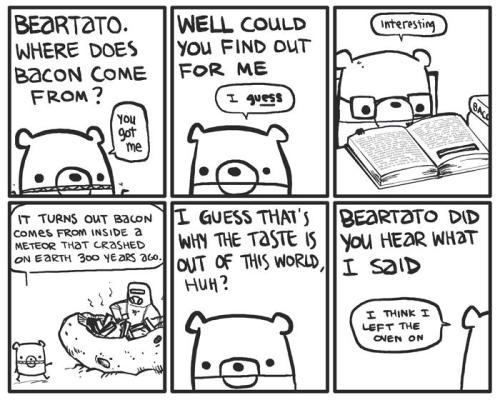 BEARTATO.
WHERE DOES
BACON COME
FROM?
YOU
got
me
WELL COULD
YOU FIND OUT
FOR ME
I guess
Interesting
IT TURNS OUT BACON
COMES FROM INSIDE A
METEOR THAT CRASHED
ON EARTH 300 YEARS AGO.
I GUESS THAT'S
WHY THE TASTE IS
OUT OF THIS WORLD,
HUH?
BEARTATO DID
YOU HEAR WHAT
I SAID
I THINK I
LEFT THE
OVEN ON